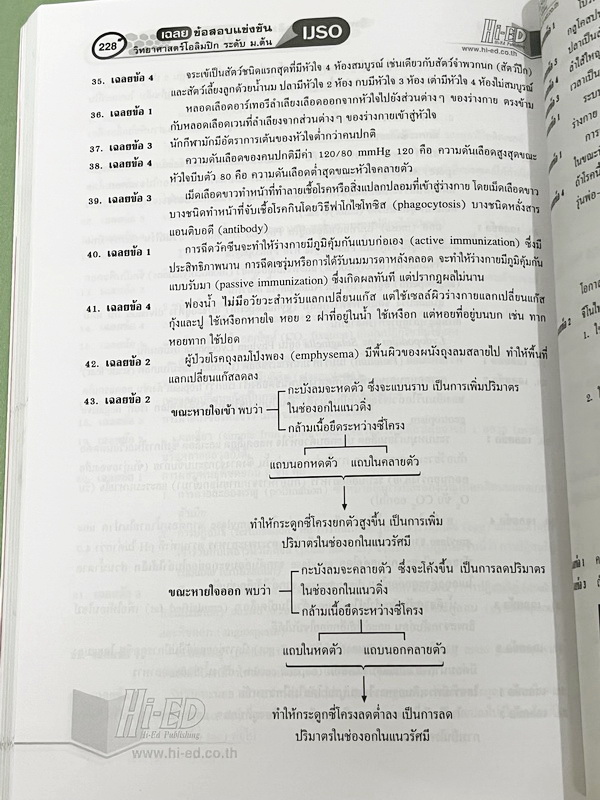 228
เฉลย ข้อสอบแข่งขัน
วิทยาศาสตร์โอลิมปิก ระดับ ม.ต้น
IJSO
Hi-ED
www.hi-ed.co.th
35. เฉลยข้อ 4 จระเข้เป็นสัตว์ชนิดแรกสุดที่มีหัวใจ 4 ห้องสมบูรณ์ เช่นเดียวกับสัตว์จำพวกนก (สัตว์ปีก)
และสัตว์เลี้ยงลูกด้วยน้ำนม ปลามีหัวใจ 2 ห้อง กบมีหัวใจ 3 ห้อง เต่ามีหัวใจ 4 ห้องไม่สมบูรณ์
36. เฉลยข้อ 1 หลอดเลือดอาร์เทอรีลำเลียงเลือดออกจากหัวใจไปยังส่วนต่างๆ ของร่างกาย ตรงข้าม
กับหลอดเลือดเวนที่ลำเลียงจากส่วนต่างๆ ของร่างกายเข้าสู่หัวใจ
37. เฉลยข้อ 3 นักกีฬามักมีอัตราการเต้นของหัวใจต่ำกว่าคนปกติ
38. เฉลยข้อ 4 ความดันเลือดของคนปกติมีค่า 120/80 mmHg 120 คือ ความดันเลือดสูงสุดขณะ
หัวใจบีบตัว 80 คือ ความดันเลือดต่ำสุดขณะหัวใจคลายตัว
39. เฉลยข้อ 3 เม็ดเลือดขาวทำหน้าที่ทำลายเชื้อโรคหรือสิ่งแปลกปลอมที่เข้าสู่ร่างกาย โดยเม็ดเลือดขาว
บางชนิดทำหน้าที่จับเชื้อโรคกินโดยวิธีฟาโกไซโทซิส (phagocytosis) บางชนิดหลั่งสาร
แอนติบอดี (antibody)
40. เฉลยข้อ 1 การฉีดวัคซีนจะทำให้ร่างกายมีภูมิคุ้มกันแบบก่อเอง (active immunization) ซึ่งมี
ประสิทธิภาพนาน การฉีดเซรุ่มหรือการได้รับนมมารดาหลังคลอด จะทำให้ร่างกายมีภูมิคุ้มกัน
แบบรับมา (passive immunization) ซึ่งเกิดผลทันที แต่ปรากฏผลไม่นาน
41. เฉลยข้อ 4 ฟองน้ำ ไม่มีอวัยวะสำหรับแลกเปลี่ยนแก๊ส แต่ใช้เซลล์ผิวร่างกายแลกเปลี่ยนแก๊ส
กุ้งและปู ใช้เหงือกหายใจ หอย 2 ฝาที่อยู่ในน้ำ ใช้เหงือก แต่หอยที่อยู่บนบก เช่น ทาก
หอยทาก ใช้ปอด
42. เฉลยข้อ 2 ผู้ป่วยโรคถุงลมโป่งพอง (emphysema) มีพื้นผิวของผนังถุงลมสลายไป ทำให้พื้นที่
แลกเปลี่ยนแก๊สลดลง
43. เฉลยข้อ 2
กะบังลมจะหดตัว ซึ่งจะแบนราบ เป็นการเพิ่มปริมาตร
ขณะหายใจเข้า พบว่า ในช่องอกในแนวดิ่ง
กล้ามเนื้อยึดระหว่างซี่โครง
แถบนอกหดตัว แถบในคลายตัว
ทำให้กระดูกซี่โครงยกตัวสูงขึ้น เป็นการเพิ่ม
ปริมาตรในช่องอกในแนวรัศมี
กะบังลมจะคลายตัว ซึ่งจะโค้งขึ้น เป็นการลดปริมาตร
ขณะหายใจออก พบว่า ในช่องอกในแนวดิ่ง
กล้ามเนื้อยึดระหว่างซี่โครง
แถบในหดตัว แถบนอกคลายตัว
ทำให้กระดูกซี่โครงลดต่ำลง เป็นการลด
ปริมาตรในช่องอกในแนวรัศมี
Hi-ED
Hi-Ed Publishing
www.hi-ed.co.th